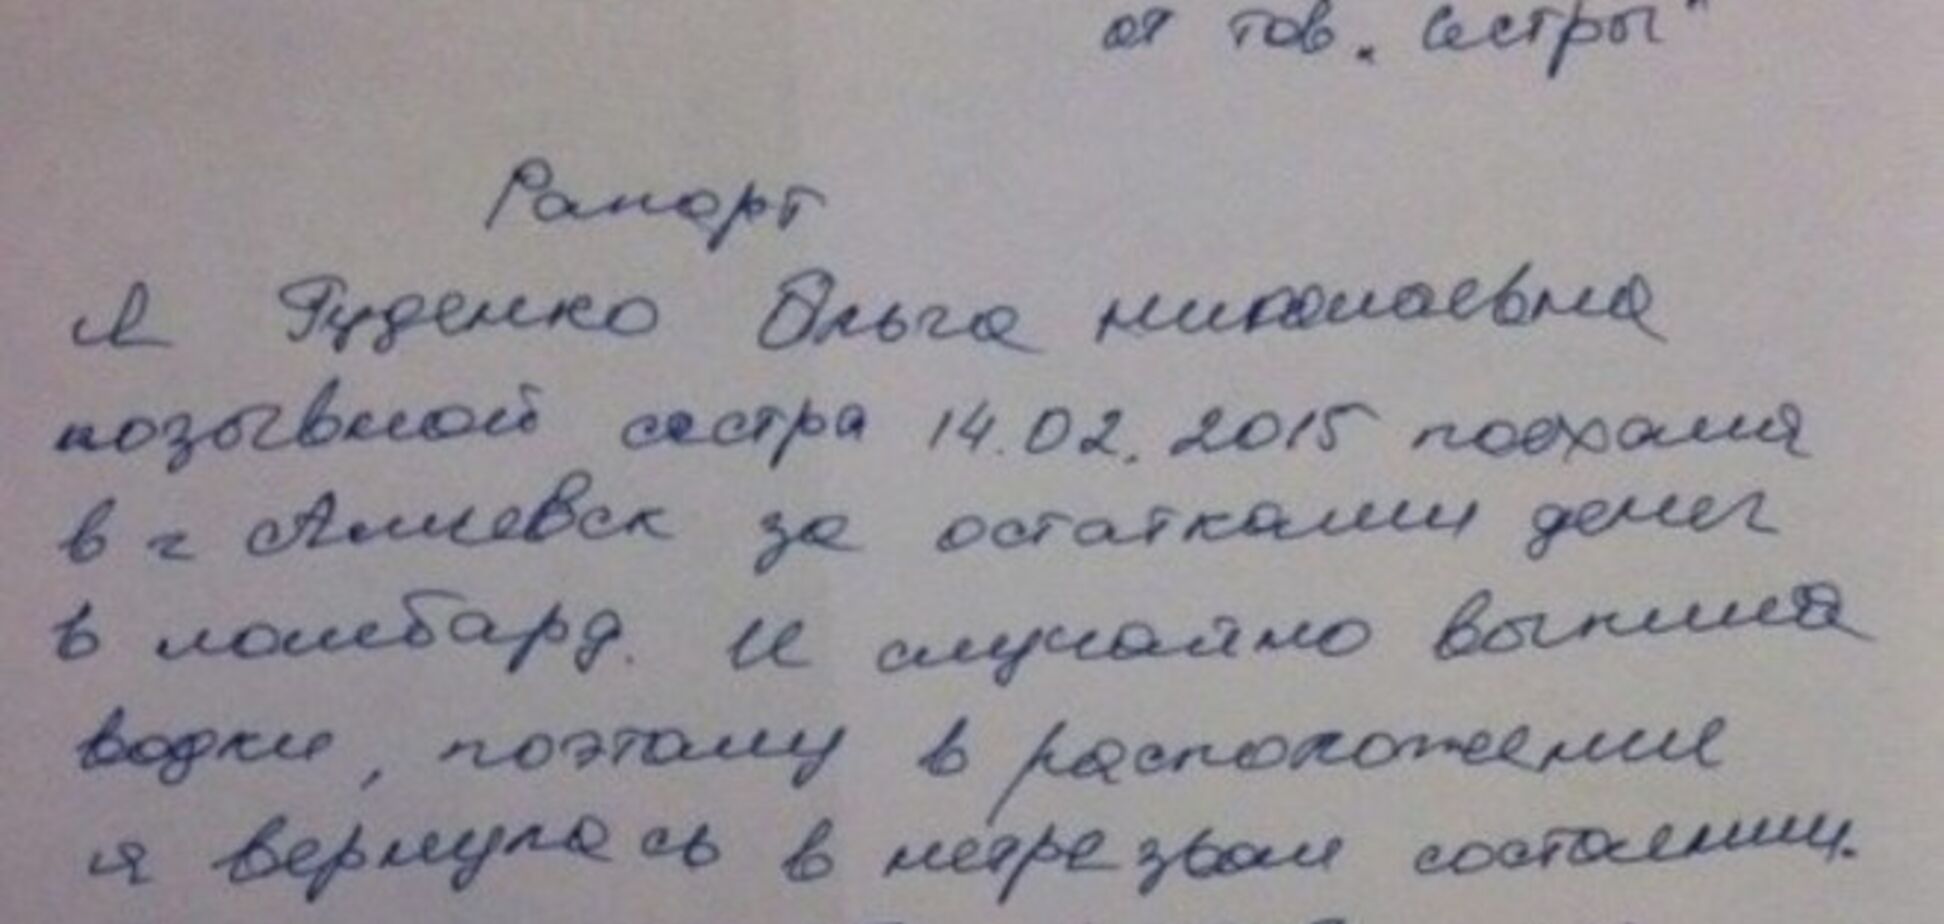 от тов. Сестры"
Рапорт
Я Руденко Ольга Николаевна
позывной сестра 14.02.2015 поехала
в г Алчевск за остатками денег
в ломбард. И случайно выпила
водки, поэтому в расположение
я вернулась в нетрезвом состоянии.